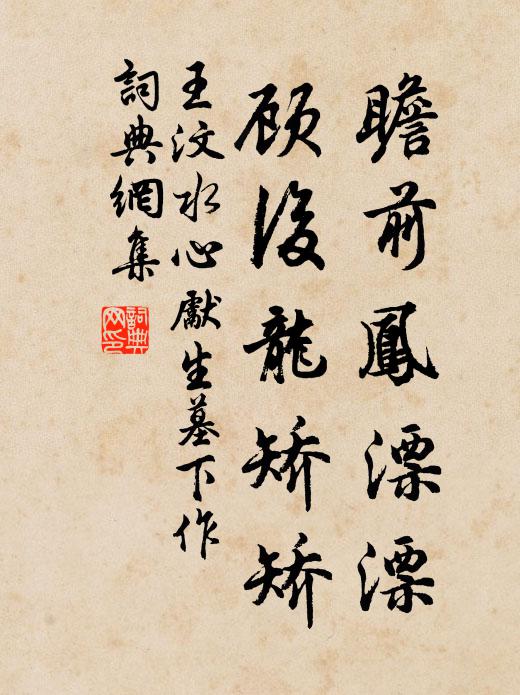 瞻前鳳漂漂
顾後龍矫矫
王汶水心獻生墓下作
詞典網集
詞典网印